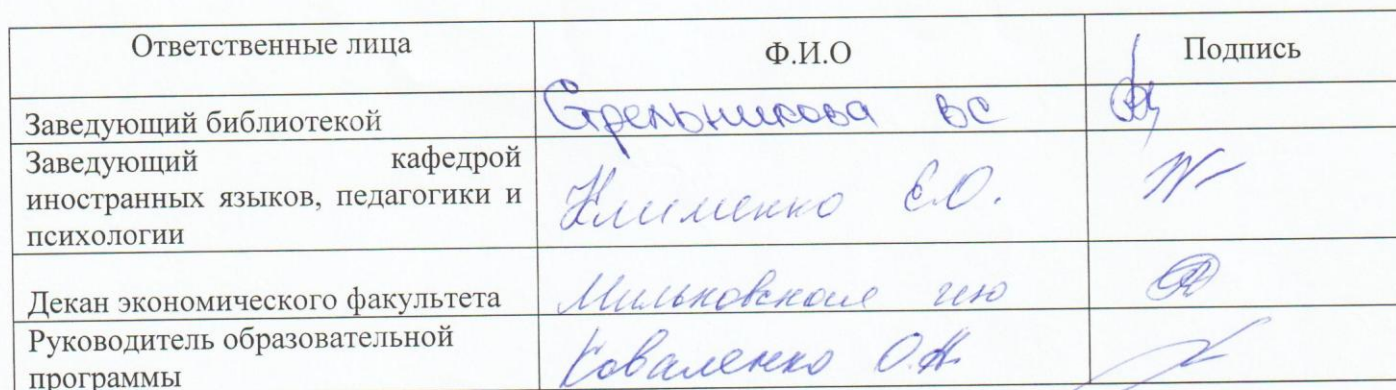 Ответственные лица Ф.И.О Подпись
Заведующий библиотекой Стрельникова ВС
Заведующий кафедрой
иностранных языков, педагогики и Клименко Е.О.
психологии
Декан экономического факультета Мильковская ИЮ
Руководитель образовательной Коваленко О.Н.
программы